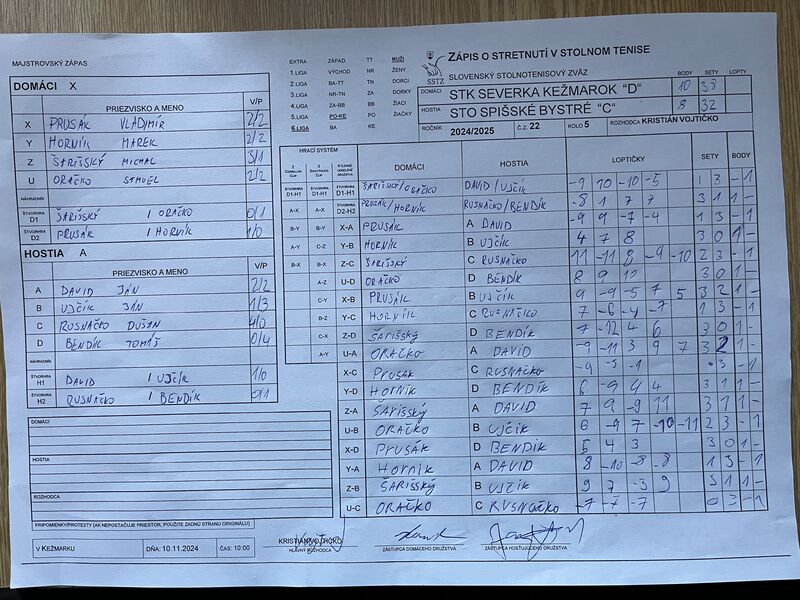 MAJSTROVSKÝ ZÁPAS
DOMÁCI X
PRIEZVISKO A MENO V/P
X PRUSÁK VLADIMÍR 2/2
Y HORNÍK MAREK 2/2
Z ŠARIŠSKÝ MICHAL 3/1
U ORAČKO SAMUEL 2/2
NÁHRADNÍK
ŠTVORHRA D1 ŠARIŠSKÝ / ORAČKO 0/1
ŠTVORHRA D2 PRUSÁK / HORNÍK 1/0
HOSTIA A
PRIEZVISKO A MENO V/P
A DAVID JÁN 2/2
B UJČÍK JÁN 1/3
C RUSNAČKO DUŠAN 4/0
D BENDÍK TOMÁŠ 0/4
NÁHRADNÍK
ŠTVORHRA H1 DAVID / UJČÍK 1/0
ŠTVORHRA H2 RUSNAČKO / BENDÍK 0/1
DOMÁCI
HOSTIA
ROZHODCA
PRIPOMIENKY/PROTESTY (AK NEPOSTAČUJE PRIESTOR, POUŽITE ZADNÚ STRANU ORIGINÁLU)
V KEŽMARKU DŇA: 10.11.2024 ČAS: 10:00
EXTRA ZÁPAD TT MUŽI
1.LIGA VÝCHOD NR ŽENY
2.LIGA BA-TT TN DORCI
3.LIGA NR-TN ZA DORKY
4.LIGA ZA-BB BB ŽIACI
5.LIGA PO-KE PO ŽIAČKY
6.LIGA BA KE
SSTZ
ZÁPIS O STRETNUTÍ V STOLNOM TENISE
SLOVENSKÝ STOLNOTENISOVÝ ZVÄZ BODY SETY LOPTY
DOMÁCI STK SEVERKA KEŽMAROK "D" 10 38
HOSTIA STO SPIŠSKÉ BYSTRÉ "C" 8 32
ROČNÍK 2024/2025 Č.Z. 22 KOLO 5 ROZHODCA KRISTIÁN VOJTIČKO
HRACÍ SYSTÉM
DOMÁCI HOSTIA LOPTIČKY SETY BODY
ŠTVORHRA D1-H1 ŠTVORHRA D1-H1 ŠTVORHRA D1-H1 ŠARIŠSKÝ/ORAČKO DAVID/UJČÍK -9 10 -10 -5 1 3 - 1
A-X A-X ŠTVORHRA D2-H2 PRUSÁK/HORNÍK RUSNAČKO/BENDÍK -8 1 7 7 3 1 1 -
B-Y B-Y X-A PRUSÁK A DAVID -9 9 -7 -4 1 3 - 1
A-Y C-Z Y-B HORNÍK B UJČÍK 4 7 8 3 0 1 -
B-X B-X Z-C ŠARIŠSKÝ C RUSNAČKO 11 -11 8 -9 -10 2 3 - 1
A-Z U-D ORAČKO D BENDÍK 8 9 12 3 0 1 -
C-Y X-B PRUSÁK B UJČÍK 9 -9 -5 7 5 3 2 1 -
B-X Y-C HORNÍK C RUSNAČKO 7 -6 -4 -7 1 3 - 1
C-X Z-D ŠARIŠSKÝ D BENDÍK 7 -12 4 6 3 1 -
A-Y U-A ORAČKO A DAVID -9 -11 3 9 7 3 2 1 -
X-C PRUSÁK C RUSNAČKO -9 -5 -1 3 - 1
Y-D HORNÍK D BENDÍK 6 -9 4 4 3 1 1 -
Z-A ŠARIŠSKÝ A DAVID 7 9 -9 11 3 1 1 -
U-B ORAČKO B UJČÍK 6 -9 7 -10 -11 2 3 - 1
X-D PRUSÁK D BENDÍK 5 4 3 3 0 1 -
Y-A HORNÍK A DAVID 8 -10 -8 -8 1 3 - 1
Z-B ŠARIŠSKÝ B UJČÍK 9 7 -3 9 3 1 1 -
U-C ORAČKO C RUSNAČKO -7 -7 -7 0 3 - 1
KRISTIÁN VOJTIČKO
HLAVNÝ ROZHODCA ZÁSTUPCA DOMÁCEHO DRUŽSTVA ZÁSTUPCA HOSŤUJÚCEHO DRUŽSTVA